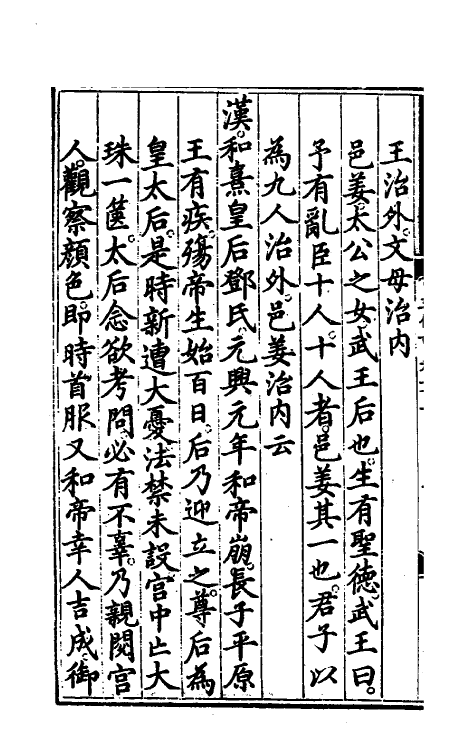 王治外。文母治内
邑姜。太公之女。武王后也。生有聖德。武王曰。
予有亂臣十人。十人者。邑姜其一也。君子以
為九人治外。邑姜治内云
漢和熹皇后鄧氏。元興元年。和帝崩。長子平原
王有疾。殤帝生始百日。后乃迎立之。尊后為
皇太后。是時新遭大憂。法禁未設。宮中亡大
珠一篋。太后念欲考問。必有不辜。乃親閱宮
人。觀察顏色。即時首服。又和帝幸人吉成。御